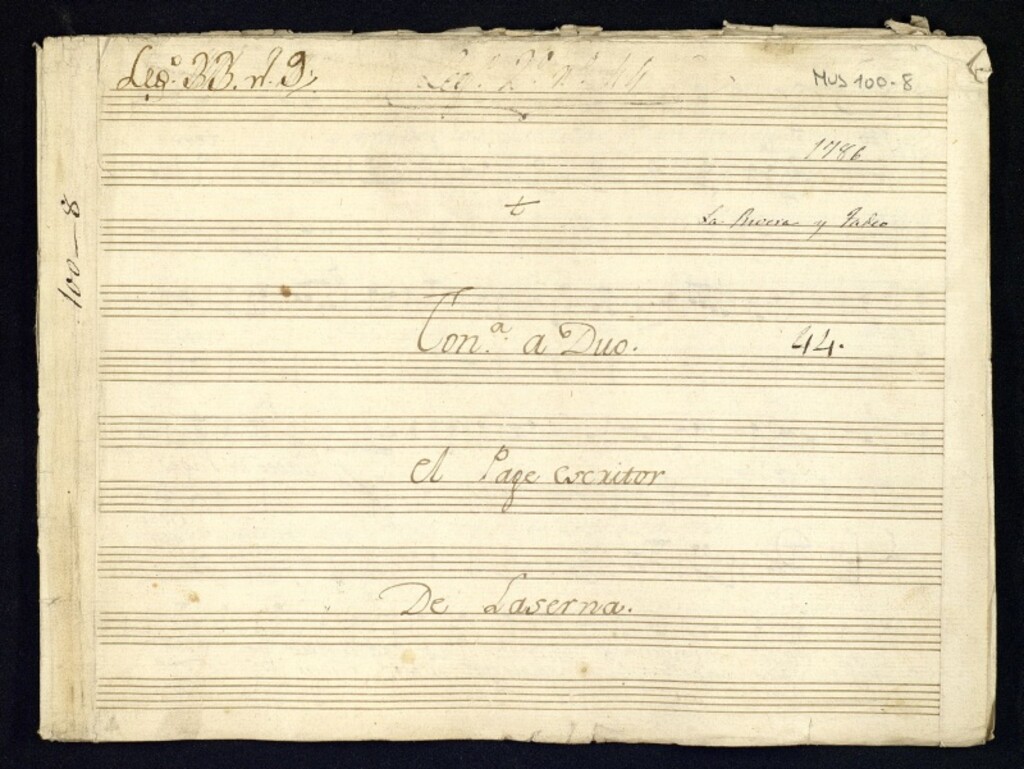 Leg.º 33. n.º 9.
MUS 100-8
1786
t
La Rivera y Tadeo
100-8
Ton.ª a Duo. 44.
el Page escritor
De Laserna.